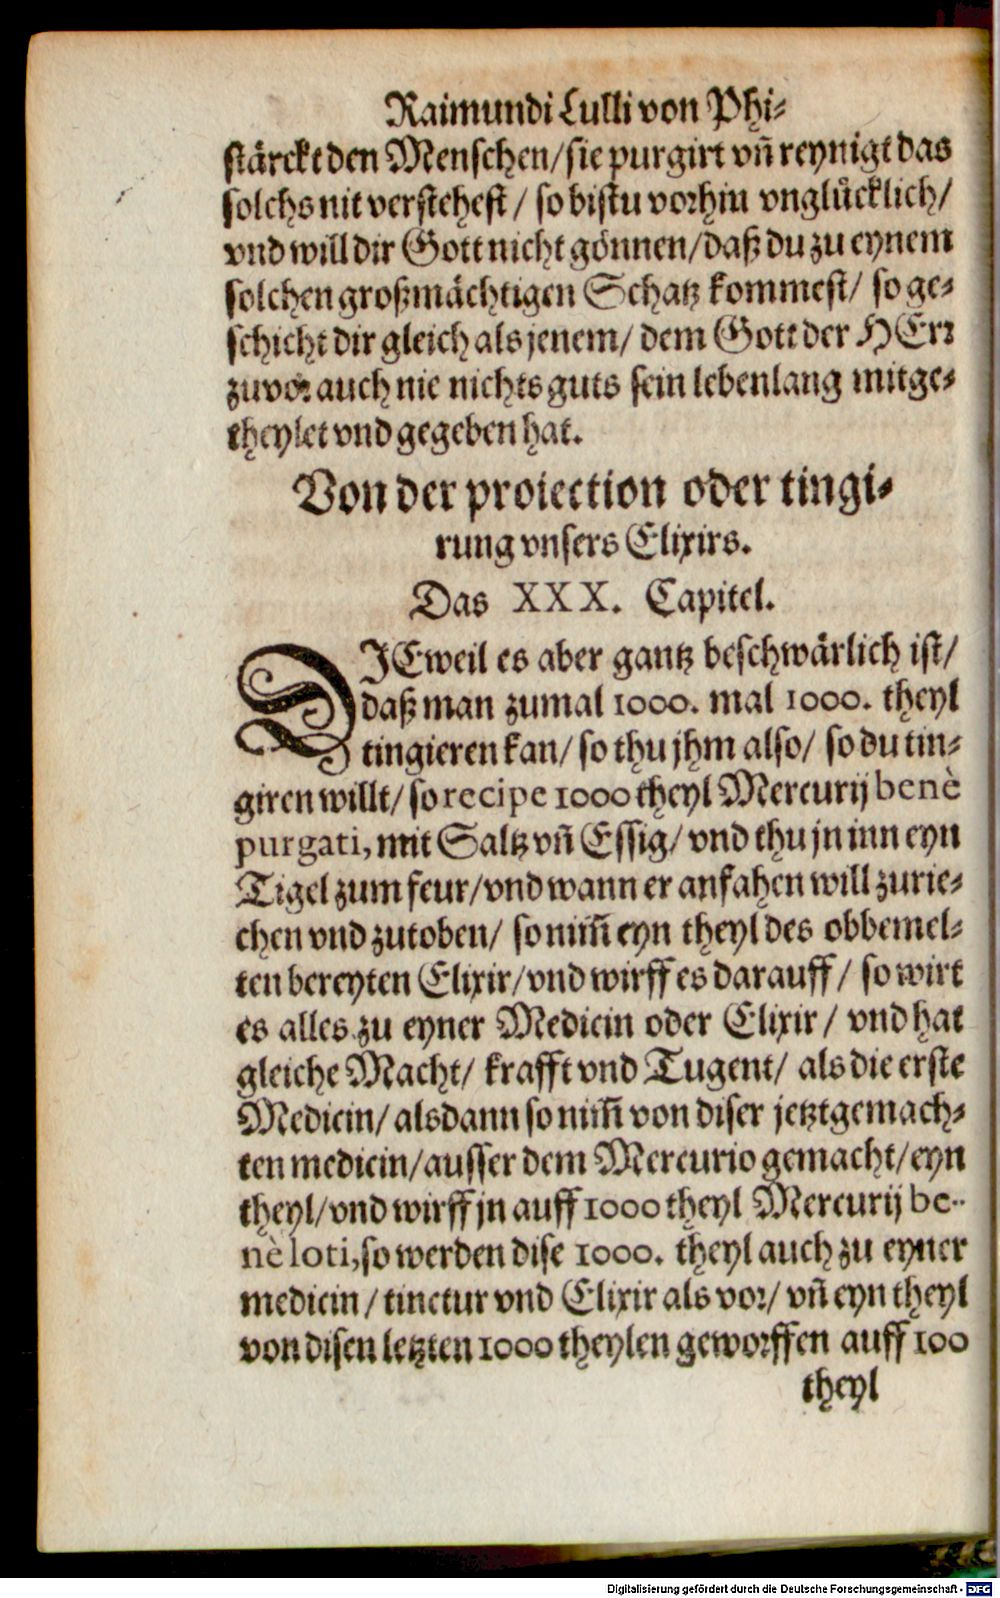 Raimundi Lulli von Phi⸗
stärckt den Menschen/sie purgirt vñ reynigt das
solchs nit verstehest / so bistu vorhin vnglücklich/
vnd will dir Gott nicht gönnen/daß du zu eynem
solchen großmächtigen Schatz kommest/ so ge⸗
schicht dir gleich als jenem/ dem Gott der HErr
zuvor auch nie nichts guts sein lebenlang mitge⸗
theylet vnd gegeben hat.
Von der proiection oder tingi⸗
rung vnsers Elixirs.
Das XXX. Capitel.
DJEweil es aber gantz beschwärlich ist/
daß man zumal 1000. mal 1000. theyl
tingieren kan/ so thu jhm also/ so du tin⸗
giren willt/ so recipe 1000 theyl Mercurij benè
purgati, mit Saltz vñ Essig/ vnd thu jn inn eyn
Tigel zum feur/vnd wann er anfahen will zurie⸗
chen vnd zutoben/ so nim̃ eyn theyl des obbemel⸗
ten bereyten Elixir/vnd wirff es darauff / so wirt
es alles zu eyner Medicin oder Elixir / vnd hat
gleiche Macht/ krafft vnd Tugent/ als die erste
Medicin/ alsdann so nim̃ von diser jetztgemach⸗
ten medicin/ausser dem Mercurio gemacht/eyn
theyl/vnd wirff jn auff 1000 theyl Mercurij be⸗
nè loti,so werden dise 1000. theyl auch zu eyner
medicin / tinctur vnd Elixir als vor/ vñ eyn theyl
von disen letzten 1000 theylen geworffen auff 100
theyl
Digitalisierung gefördert durch die Deutsche Forschungsgemeinschaft - DFG